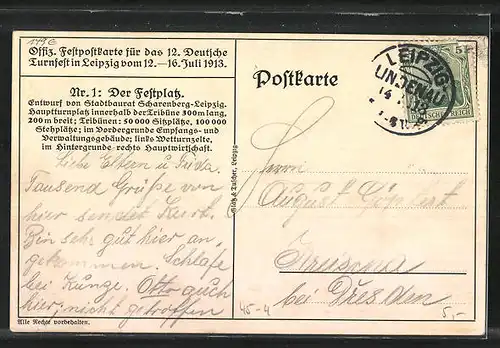 1496
Offiz. Festpostkarte für das 12. Deutsche
Turnfest in Leipzig vom 12.—16. Juli 1913.
Nr. 1: Der Festplatz.
Entwurf von Stadtbaurat Scharenberg-Leipzig.
Hauptturnplatz innerhalb der Tribüne 300 m lang,
200 m breit; Tribünen: 50 000 Sitzplätze, 100 000
Stehplätze; im Vordergrunde Empfangs- und
Verwaltungsgebäude; links Wetturnzelte,
im Hintergrunde rechts Hauptwirtschaft.
Liebe Eltern u Frida.
Tausend Grüße von
hier sendet Kurt.
Bin sehr gut hier an,
gekommen. Schlafe
bei Kunze. Otto auch
hier, nicht getroffen
Alle Rechte vorbehalten.
Glatz & Tuscher, Leipzig
Postkarte
LEIPZIG
LINDENAU
14
5
DEUTSCHES REICH
Herrn
August
bei Dresden
45-4
5,-